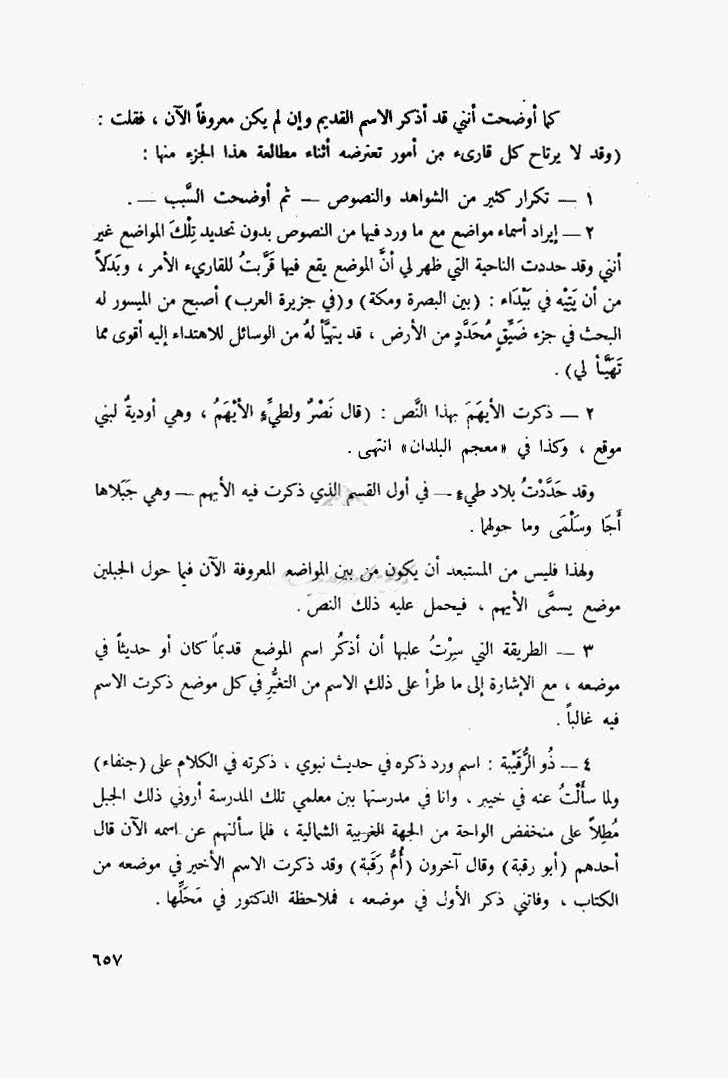 كما أوضحت أنني قد أذكر الاسم القديم وإن لم يكن معروفاً الآن ، فقلت :
(وقد لا يرتاح كل قارىء من أمور تعترضه أثناء مطالعة هذا الجزء منها :
١ — تكرار كثير من الشواهد والنصوص — ثم أوضحت السَّبب — .
٢ — إيراد أسماء مواضع مع ما ورد فيها من النصوص بدون تحديد تِلْكَ المواضع غير
أنني وقد حددت الناحية التي ظهر لي أنَّ الموضع يقع فيها قَرَّبتُ للقاريء الأمر ، وبَدَلاً
من أن يَتِيْه في بَيْدَاء : (بين البصرة ومكة) و(في جزيرة العرب) أصبح من الميسور له
البحث في جزء ضَيِّقٍ مُحَدَّدٍ من الأرض ، قد يتهيَّأ لهُ من الوسائل للاهتداء إليه أقوى مما
تَهَيَّأ لي) .
٢ — ذكرت الأيهَمَ بهذا النَّص : (قال نَصْرٌ ولطيِّءٍ الأيْهَمُ ، وهي أوديةٌ لبني
موقع ، وكذا في «معجم البلدان» انتهى .
وقد حَدَّدْتُ بلاد طيءٍ — في أول القسم الذي ذكرت فيه الأيهم — وهي جَبَلاها
أَجَا وسَلْمَى وما حولهما .
ولهذا فليس من المستبعد أن يكون من بين المواضع المعروفة الآن فيما حول الجبلين
موضع يسمَّى الأيهم ، فيحمل عليه ذلك النص .
٣ — الطريقة التي سِرْتُ عليها أن أذكُر اسم الموضع قديماً كان أو حديثاً في
موضعه ، مع الإشارة إلى ما طرأ على ذلك الاسم من التغيُّرِ في كل موضع ذكرت الاسم
فيه غالباً .
٤ — ذُو الرُّقَيْبة : اسم ورد ذكره في حديث نبوي ، ذكرته في الكلام على (جنفاء)
ولما سأَلْتُ عنه في خيبر ، وانا في مدرستها بين معلمي تلك المدرسة أروني ذلك الجبل
مُطِلاًّ على منخفض الواحة من الجهة الغربية الشمالية ، فلما سألتهم عن اسمه الآن قال
أحدهم (أبو رقبة) وقال آخرون (أُمُّ رَقَبة) وقد ذكرت الاسم الأخير في موضعه من
الكتاب ، وفاتني ذكر الأول في موضعه ، فملاحظة الدكتور في مَحَلِّها .
٦٥٧